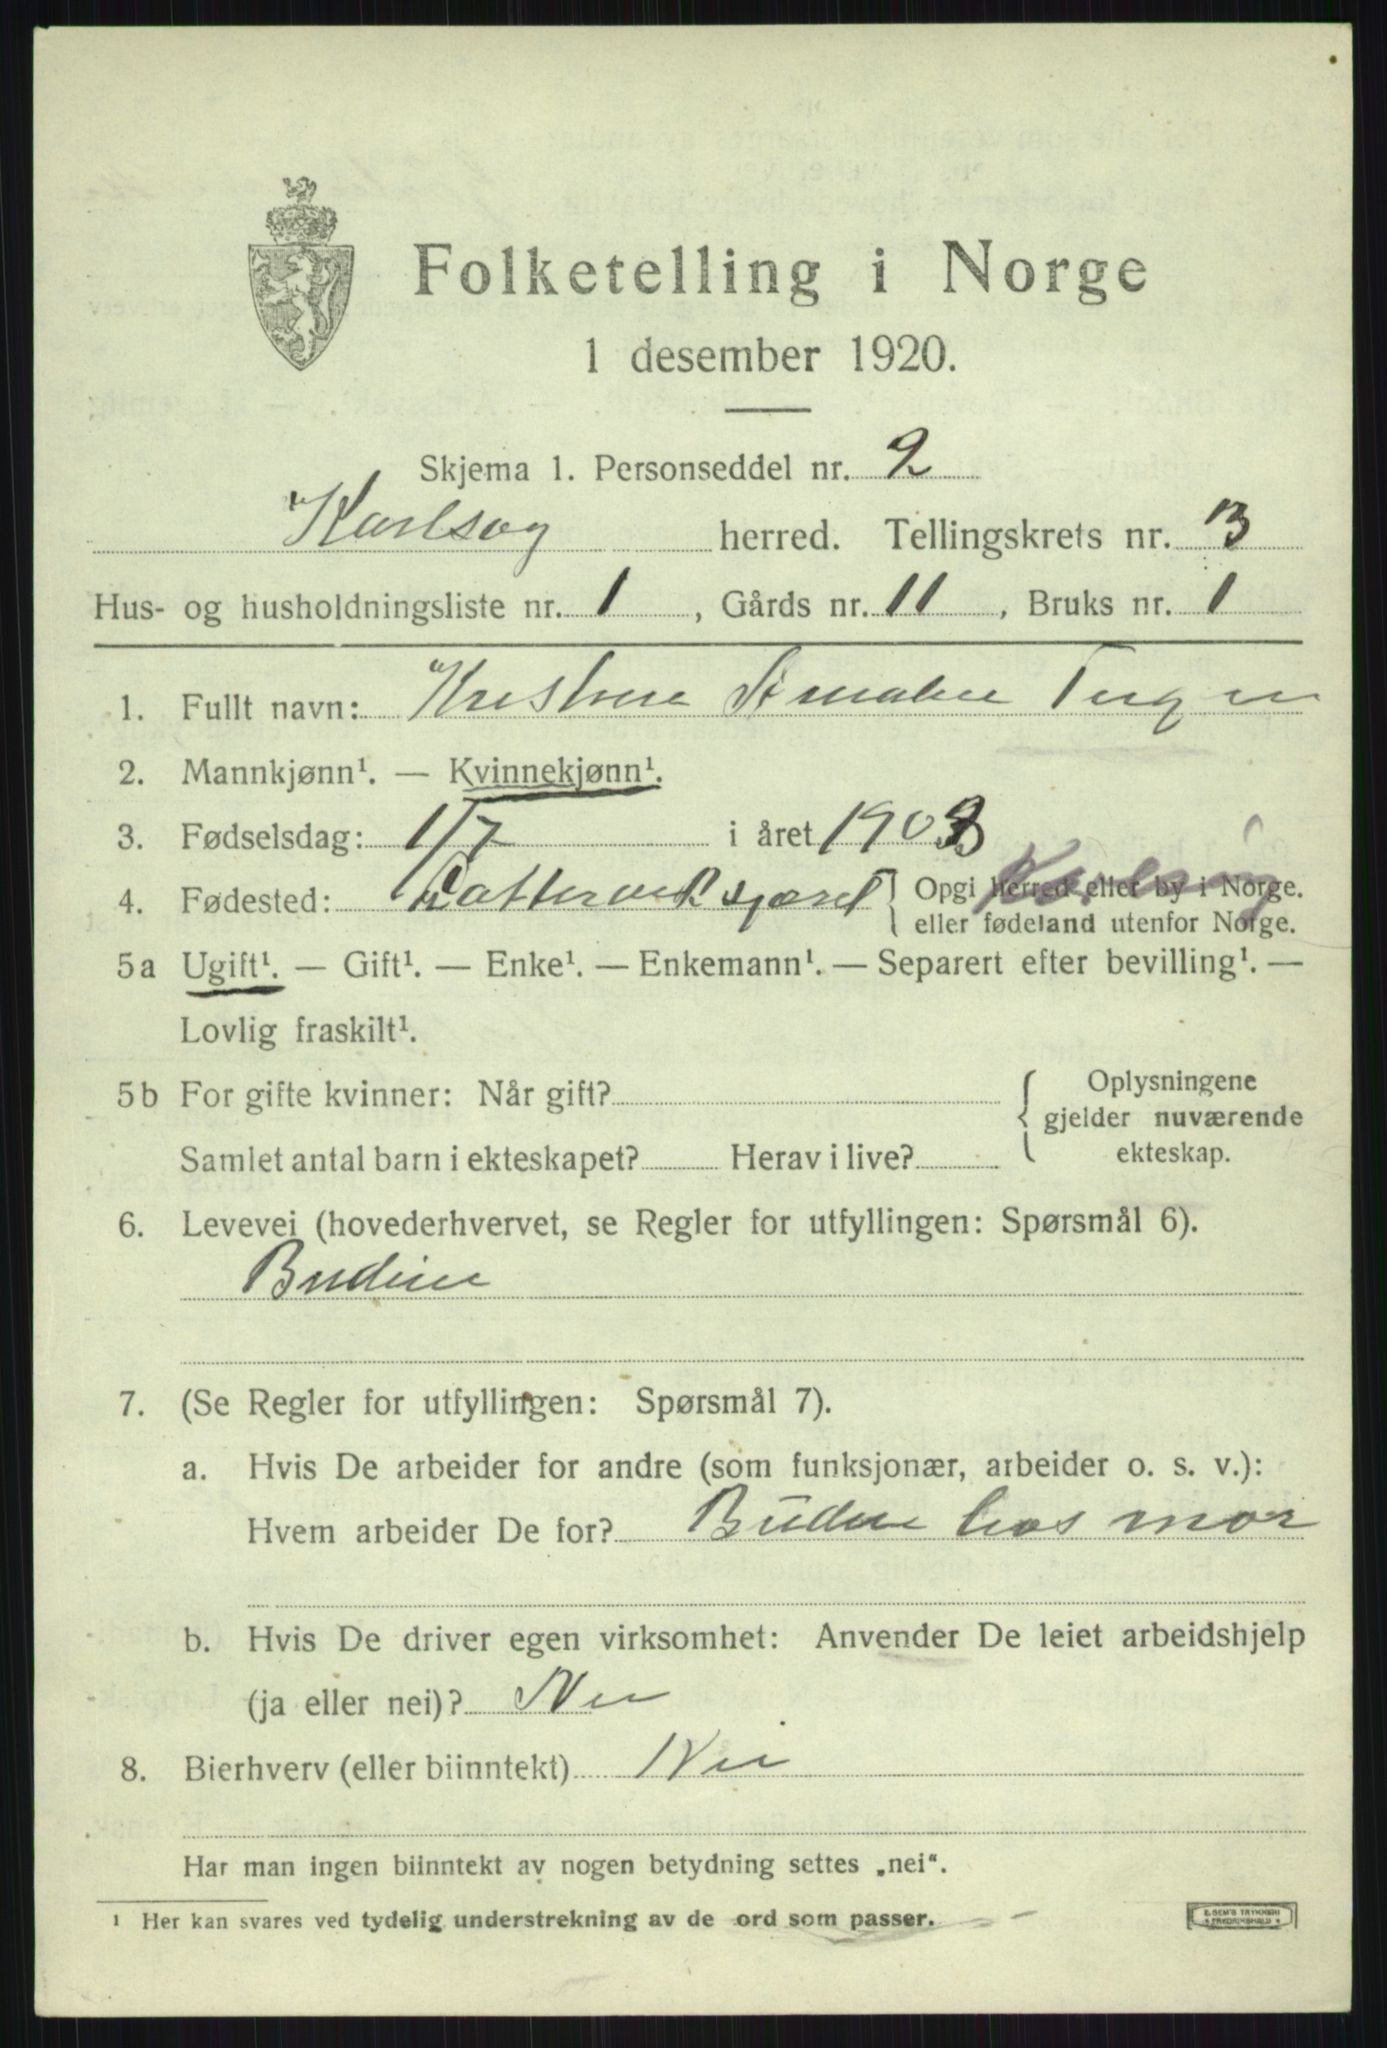 Folketelling i Norge
1 desember 1920.
Skjema 1. Personseddel nr. 2
Karlsøy herred. Tellingskrets nr. 3
Hus- og husholdningsliste nr. 1, Gårds nr. 11, Bruks nr. 1
1. Fullt navn: Kristine Amalie
2. Mannkjønn¹. — Kvinnekjønn¹.
3. Fødselsdag: 1/7 i året 1903
4. Fødested: Opgi herred eller by i Norge. Karlsøy
eller fødeland utenfor Norge.
5a Ugift¹. — Gift¹. — Enke¹. — Enkemann¹. — Separert efter bevilling¹. —
Lovlig fraskilt¹.
5b For gifte kvinner: Når gift? Oplysningene
gjelder nuværende
Samlet antal barn i ekteskapet? Herav i live? ekteskap.
6. Levevei (hovederhvervet, se Regler for utfyllingen: Spørsmål 6).
Budeie
7. (Se Regler for utfyllingen: Spørsmål 7).
a. Hvis De arbeider for andre (som funksjonær, arbeider o. s. v.):
Hvem arbeider De for? Budeie hos mor
b. Hvis De driver egen virksomhet: Anvender De leiet arbeidshjelp
(ja eller nei)? Nei
8. Bierhverv (eller biinntekt) Nei
Har man ingen biinntekt av nogen betydning settes „nei“.
¹ Her kan svares ved tydelig understrekning av de ord som passer.
E. SEM'S TRYKKERI
FREDRIKSHALD